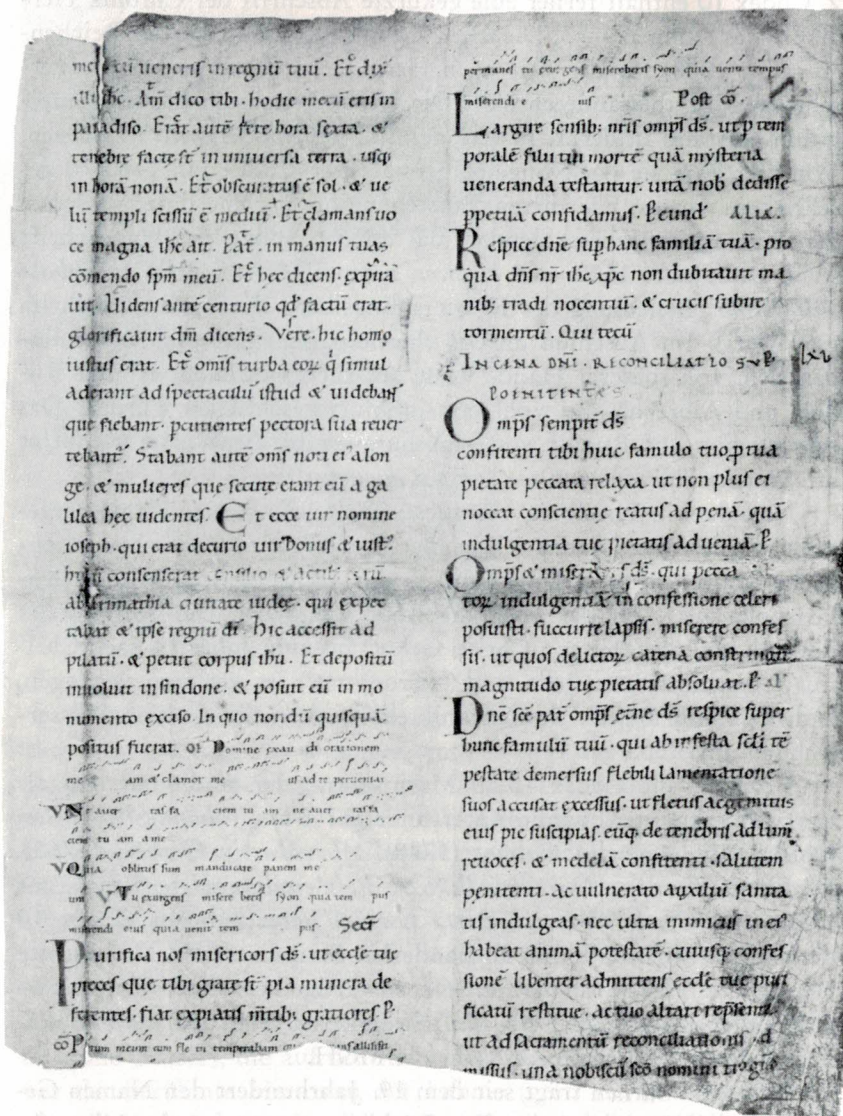 me tū ueneris in regnū tuū. Et dix̄
illi ihc. Am̄ dico tibi. hodie mecū eris in
paradiso. Erat autē fere hora sexta. &
tenebre facte st̄ in uniuersa terra. usq;
in horā nonā. Et obscuratus ē sol. & ue
lū templi scissū ē mediū. Et clamans uo
ce magna ihc ait. Pat̄. in manus tuas
cōmendo spm̄ meū. Et hec dicens. expira
uit. Uidens autē centurio qd̄ factū erat.
glorificauit dm̄ dicens. Vere. hic homo
iustus erat. Et omis turba eoꝝ q̄ simul
aderant ad spectaculū istud & uidebant
que fiebant. pcutientes pectora sua reuer
tebant. Stabant autē oms̄ noti ei alon
ge. & mulieres que secute erant eū a ga
lilea hec uidentes. Et ecce uir nomine
ioseph. qui erat decurio uir bonus & iust᷒.
consenserat consilio & actib;
ab arimathia ciuitate iudeę. qui expec
tabat & ipse regnū dī. Hic accessit ad
pilatū. & petiit corpus ihu. Et depositū
inuoluit in sindone. & posuit eū in mo
numento exciso. In quo nondū quisquā
positus fuerat. of Domine exau di orationem
me am & clamor me us ad te perueniat
V Ne auer tas fa ciem tu am ne auer tas fa
ciem tu am a me
V Quia oblitus sum manducare panem me
um V Tu exurgens misere beris syon quia tem pus
miserendi eius quia uenit tem pus Secr̄
Purifica nos misericors ds̄. ut eccl̄e tue
preces que tibi grate st̄ pia munera de
ferentes. fiat expiatis mtib; gratiores. P.
cō Potum meum cum fle tu temperabam
permanes tu exurgens misereberis syon quia uenit tempus
miserendi e ius Post cō.
Largire sensib; nr̄is omps̄ ds̄. ut p tem
poralē filii tui mortē quā mysteria
ueneranda testantur. uitā nob̄ dedisse
ppetuā confidamus. P eund̄ Alia.
Respice dn̄e sup hanc familiā tuā. pro
qua dn̄s nr̄ ihc xp̄c non dubitauit ma
nib; tradi nocentiū. & crucis subire
tormentū. Qui tecū
In cena dn̄i. reconciliatio sup lxv
poenitentes.
Omps̄ sempit̄ ds̄
confitenti tibi huic famulo tuo p tua
pietate peccata relaxa. ut non plus ei
noceat conscientie reatus ad penā. quā
indulgentia tue pietatis ad ueniā. P.
Omps̄ & miserc̄s ds̄. qui pecca
toꝝ indulgentiā in confessione celeri
posuisti. succurre lapsis. miserere confes
sis. ut quos delictoꝝ catena constringit
magnitudo tue pietatis absoluat. P. al̄
Dn̄e sc̄e pat̄ omps̄ et̄ne ds̄ respice super
hunc famulū tuū. qui ab infesta scl̄i tē
pestate demersus flebili lamentatione
suos accusat excessus. ut fletus ac gemitus
eius pie suscipias. eūq; de tenebris ad lum̄
reuoces. & medelā confitenti. salutem
penitenti. ac uulnerato auxiliū sanita
tis indulgeas. nec ultra inimicus in ei᷒
habeat animā potestatē. cuiusq; confes
sionē libenter admittens eccl̄e tue puri
ficatū restitue. ac tuo altari rep̄senta.
ut ad sacramentū reconciliationis
missus. una nobiscū sc̄o nomini tuo